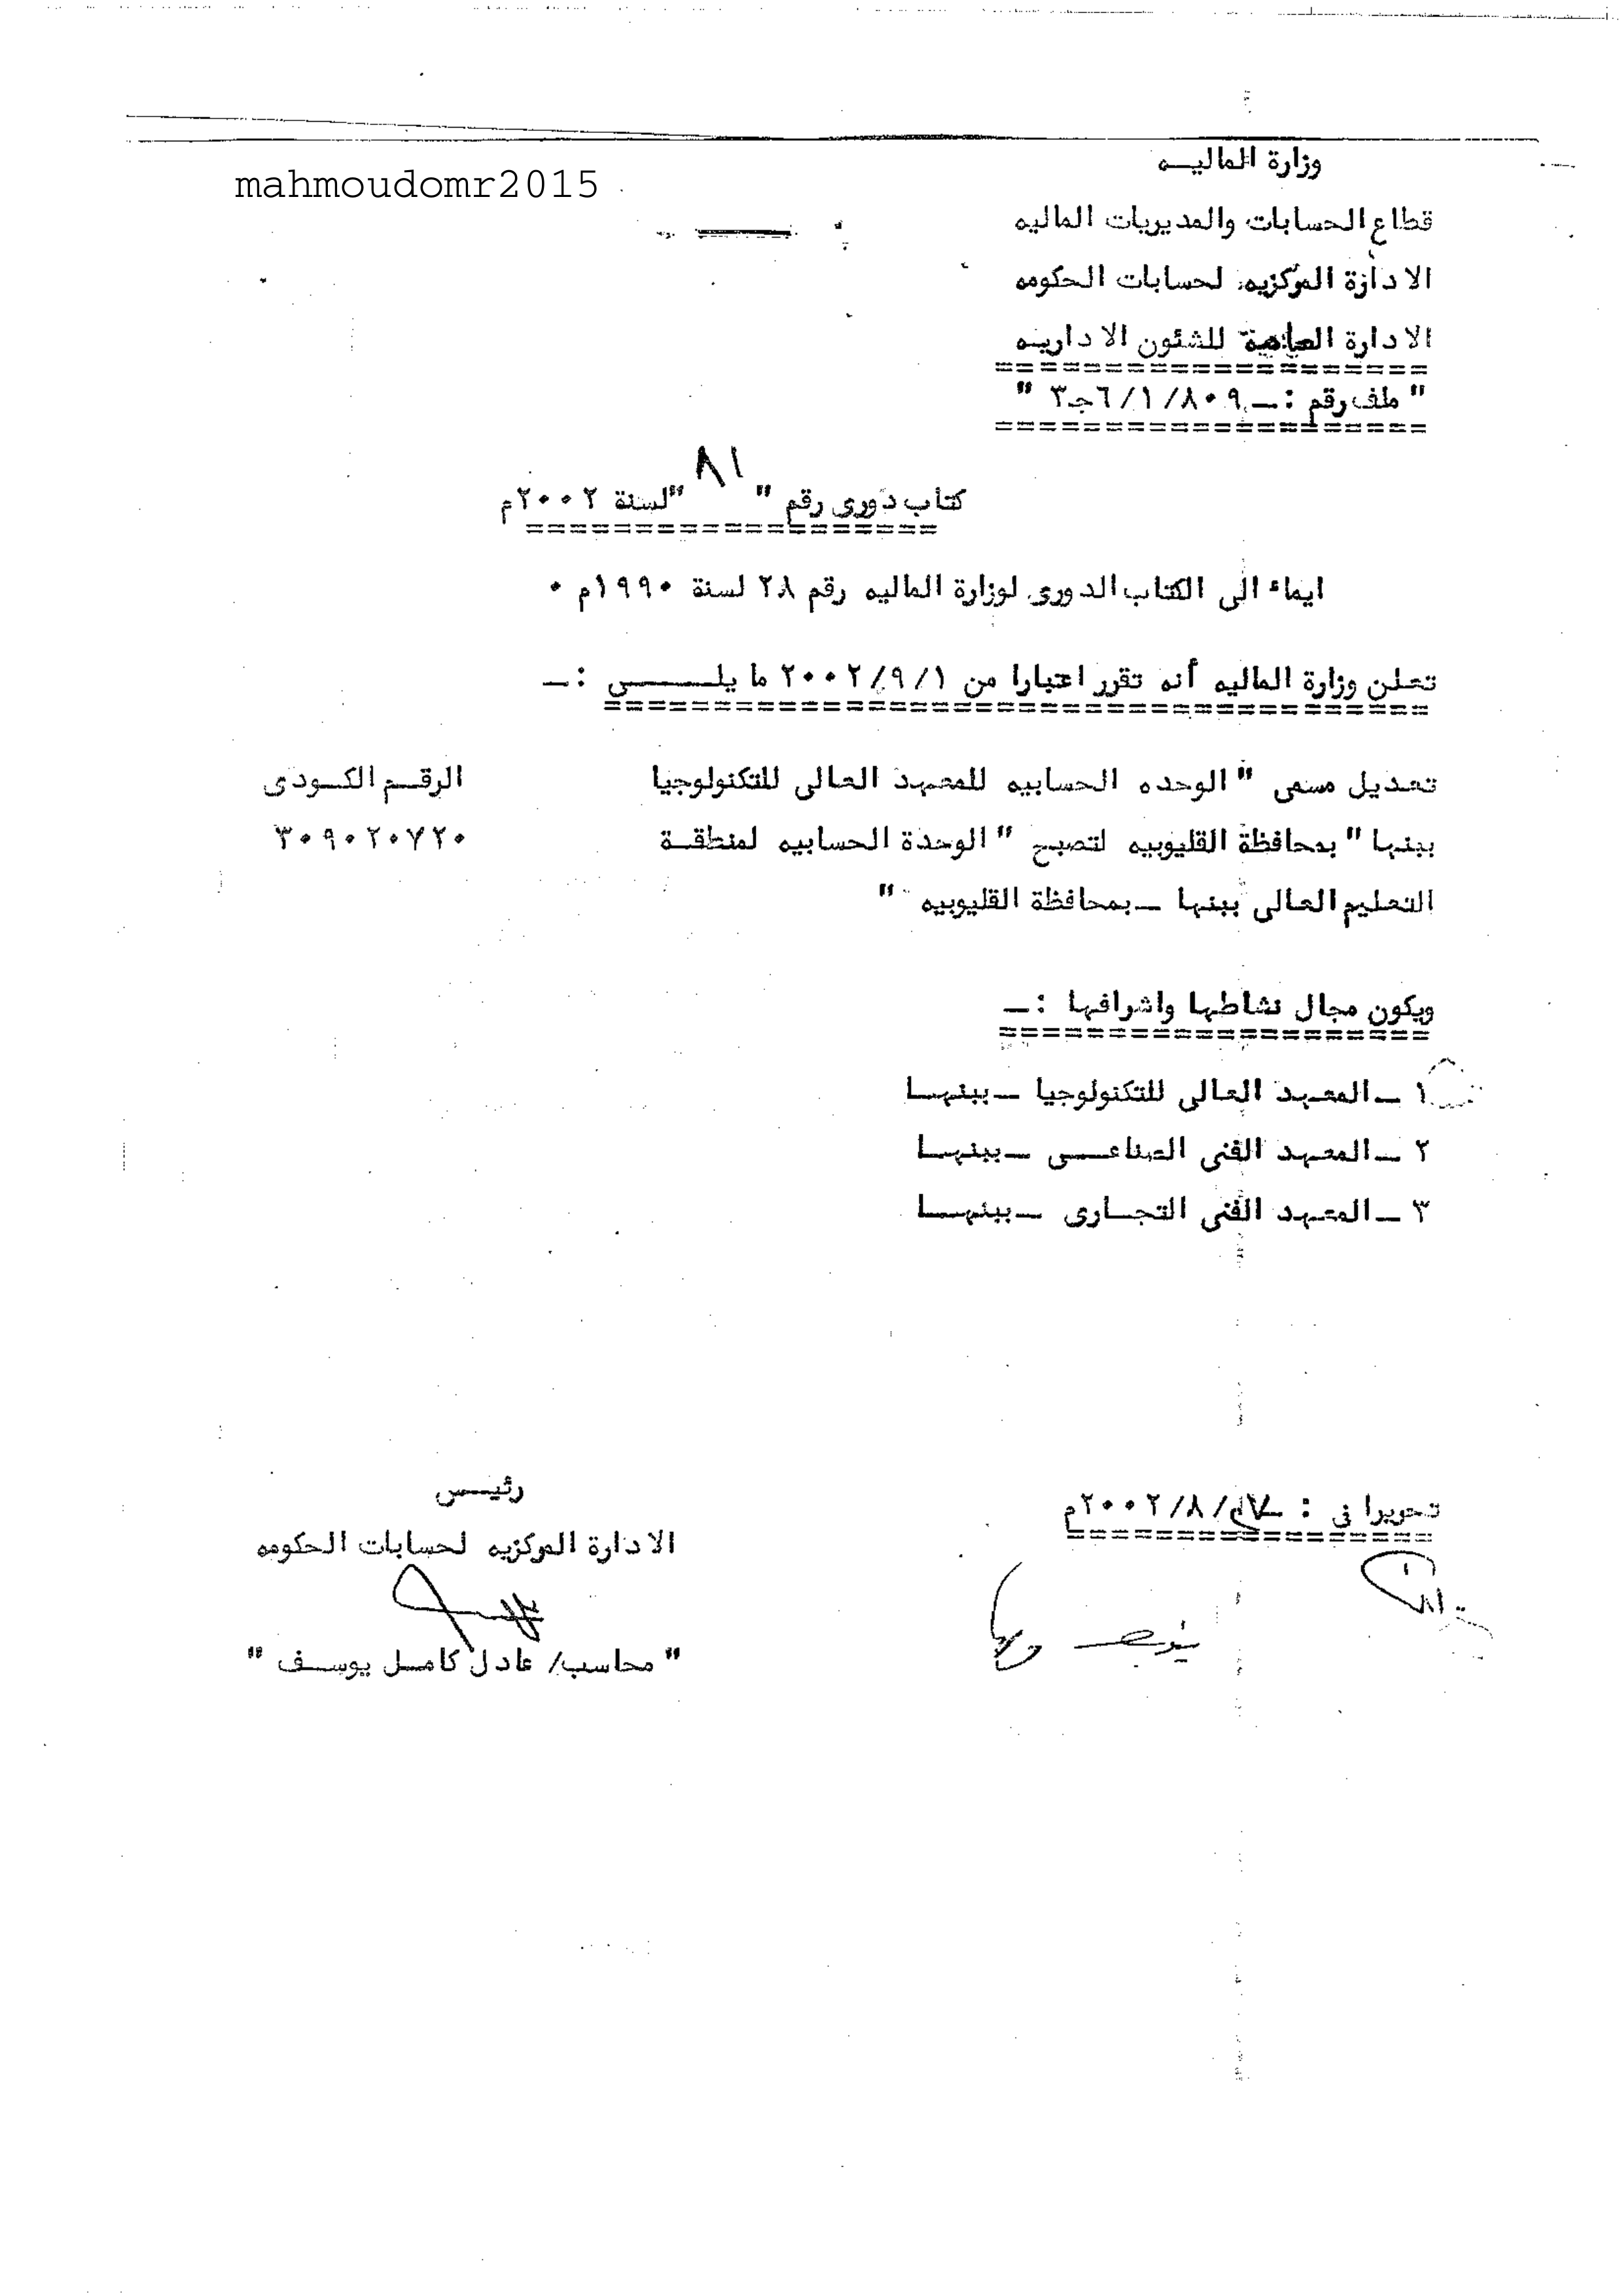 وزارة الماليــه
mahmoudomr2015
قطاع الحسابات والمديريات الماليه
الادارة المركزيه لحسابات الحكومه
الادارة العامة للشئون الاداريــه
" ملف رقم :ـ ٨٠٩/١/٦ جـ٣ "
كتاب دورى رقم " ٨١ " لسنة ٢٠٠٢م
ايماء الى الكتاب الدورى لوزارة الماليه رقم ٢٨ لسنة ١٩٩٠م ٠
تعلن وزارة الماليه أنه تقرر اعتبارا من ٢٠٠٢/٩/١ ما يلـــــى :ـ
تعديل مسمى " الوحده الحسابيه للمعهد العالى للتكنولوجيا الرقــم الكــودى
ببنها " بمحافظة القليوبيه لتصبح " الوحدة الحسابيه لمنطقــة ٣٠٩٠٢٠٧٢٠
التعليم العالى ببنها ـ بمحافظة القليوبيه "
ويكون مجال نشاطها واشرافها :ـ
١ ـ المعهد العالى للتكنولوجيا ـ ببنهــا
٢ ـ المعهد الفنى الصناعــى ـ ببنهــا
٣ ـ المعهد الفنى التجــارى ـ ببنهــا
تحريرا فى : /٨/٢٠٠٢م
رئيــس
الادارة المركزيه لحسابات الحكومه
" محاسب/ عادل كامــل يوســف "